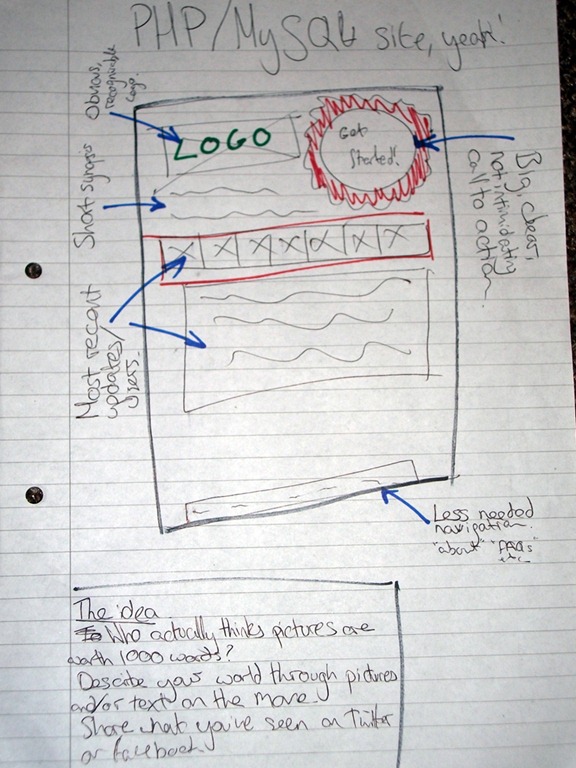 PHP/MySQL site, yeah!
Obvious,
recognisable
logo.
LOGO
Get
Started!
Big, clear,
not intimidating
call to action.
Short synopsis
Most recent
updates/
users.
Less needed
navigation.
"about" "FAQs"
etc.
The idea
Who actually thinks pictures are
worth 1000 words?
Describe your world through pictures
and/or text on the move.
Share what you've seen on Twitter
or facebook.